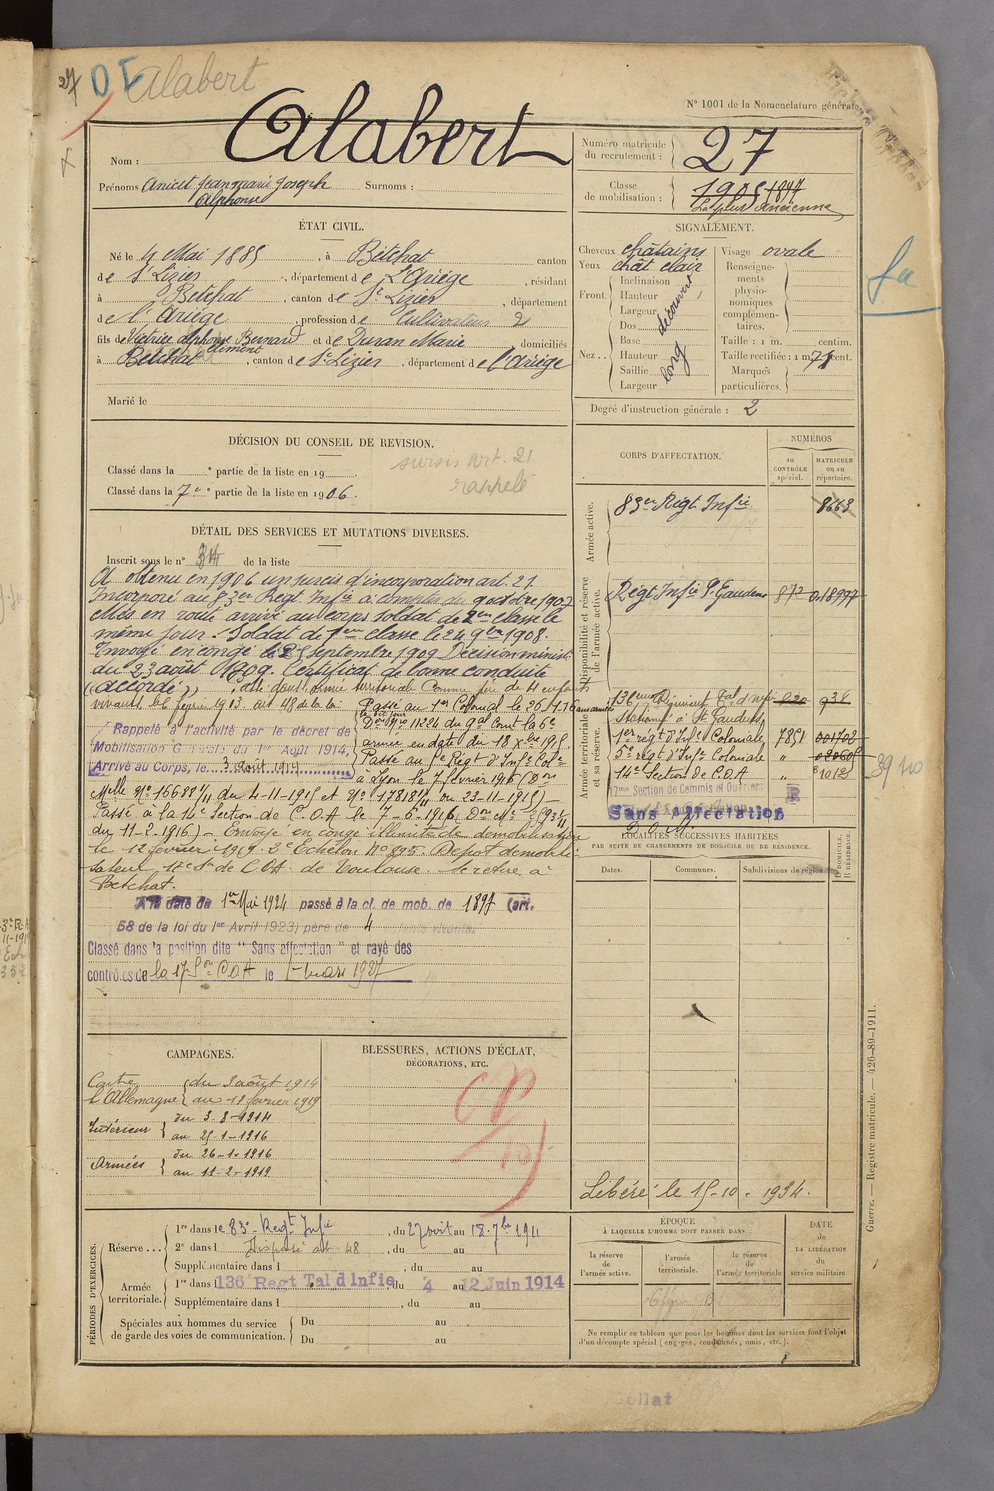 27 Alabert
N° 1001 de la Nomenclature générale.
Nom : Alabert
Prénoms Anicet Jean marie Joseph Surnoms :
Alphonse
Numéro matricule du recrutement : 27
Classe de mobilisation : 1905 1897
La plus Ancienne
ÉTAT CIVIL.
Né le 4 Mai 1885, à Betchat canton
de St Lizier, département de L'Ariège, résidant
à Betchat, canton de St Lizier, département
de l'Ariège, profession de Cultivateur 2
fils de Victoire Alphonse Bernard et de Duran Marie domiciliés
Clément
à Betchat canton de St Lizier, département de l'Ariège
Marié le
SIGNALEMENT.
Cheveux châtains Visage ovale
Yeux chât clair
Renseignements physionomiques complémentaires.
Front. Inclinaison
Hauteur
Largeur
découvert
Nez .. Dos
Base
Hauteur
Saillie
Largeur
long
Taille : 1 m. centim.
Taille rectifiée : 1 m 71 cent.
Marques particulières.
Degré d'instruction générale : 2
DÉCISION DU CONSEIL DE REVISION.
Classé dans la e partie de la liste en 19
Classé dans la 7e partie de la liste en 1906.
sursis art. 21
rappelé
DÉTAIL DES SERVICES ET MUTATIONS DIVERSES.
Inscrit sous le n° 34 de la liste
A obtenu en 1906 un sursis d'incorporation art. 21.
Incorporé au 83e Régt Infie à compter du 9 octobre 1907
Mis en route arrivé au corps soldat de 2e classe le
même jour. Soldat de 1ere classe le 24 9bre 1908.
Envoyé en congé le 25 septembre 1909 Décision minist
du 23 août 1909. Certificat de bonne conduite
"accordé" Passé dans l'armée territoriale Comme père de 4 enfants
vivants le 6 février 1913. art 48 de la loi
Passé au 1er Colonial le 26/1/16 aux armées
Don N° 11224 du Gal Comt la 6e
armée en date du 18 Xbre 1915.
Rappelé à l'activité par le décret de
Mobilisation Générale du 1er Août 1914,
Arrivé au Corps, le 3 août 1914
Passé au 5e Régt d'Infie Colle
à Lyon le 7 février 1916 (Don
Melle N° 16688 1/11 du 4-11-1915 et N° 17818 1/11 du 23-11-1915) -
Passé à la 14e Section de C.O.A le 7-6-1916
du 11-2-1916) - Envoyé en congé illimité de démobilisation
le 12 février 1919. 2e Echelon N° 895. Depot démobili-
sateur 17e Son de COA. de Toulouse. Se retire à
Betchat.
A la date du 1er Mai 1924 passé à la cl. de mob. de 1897 (art.
58 de la loi du 1er Avril 1923) père de 4 enfants vivants.
Classé dans la position dite " Sans affectation " et rayé des
contrôles de la 17e Son COA le 1er mars 1927
CORPS D'AFFECTATION.
NUMÉROS
au CONTRÔLE spécial.
MATRICULE ou au répertoire.
Armée active.
83e Régt Infie 8663
Disponibilité et réserve de l'armée active.
Régt Infie St Gaudens 872 018997
Armée territoriale et sa réserve.
136eme Régiment Tal d'Infie 920 938
Stationné à St Gaudens
1er régt d'Infie Coloniale 7851 001702
5e régt d'Infie Coloniale "
14e Section de COA " 1012
17me Section de Commis et Ouvriers
Sans Affectation
LOCALITÉS SUCCESSIVES HABITÉES
PAR SUITE DE CHANGEMENTS DE DOMICILE OU DE RÉSIDENCE.
D. DOMICILE. R. RÉSIDENCE.
Dates. Communes. Subdivisions de région.
Libéré le 15-10-1934.
CAMPAGNES.
Contre l'Allemagne { du 3 août 1914
au 11 février 1919
Intérieur { du 3-8-1914
au 25-1-1916
Armées { du 26-1-1916
au 11-2-1919
BLESSURES, ACTIONS D'ÉCLAT,
DÉCORATIONS, ETC.
PÉRIODES D'EXERCICES.
Réserve...
1re dans le 83e Regt Infie, du 27 août au 18 7bre 1911
2e dans l Dispensé art. 48, du au
Supplémentaire dans l, du au
Armée territoriale.
1re dans l 136 Regt Tal d Infie du 4 au 12 Juin 1914
Supplémentaire dans l, du au
Spéciales aux hommes du service de garde des voies de communication.
Du au
Du au
ÉPOQUE
À LAQUELLE L'HOMME DOIT PASSER DANS :
la réserve de l'armée active.
l'armée territoriale.
la réserve de l'armée territoriale
DATE de LA LIBÉRATION du service militaire.
Ne remplir ce tableau que pour les hommes dont les services font l'objet
d'un décompte spécial (engagés, condamnés, omis, etc.).
Guerre. — Registre matricule. — 426-89-1911.